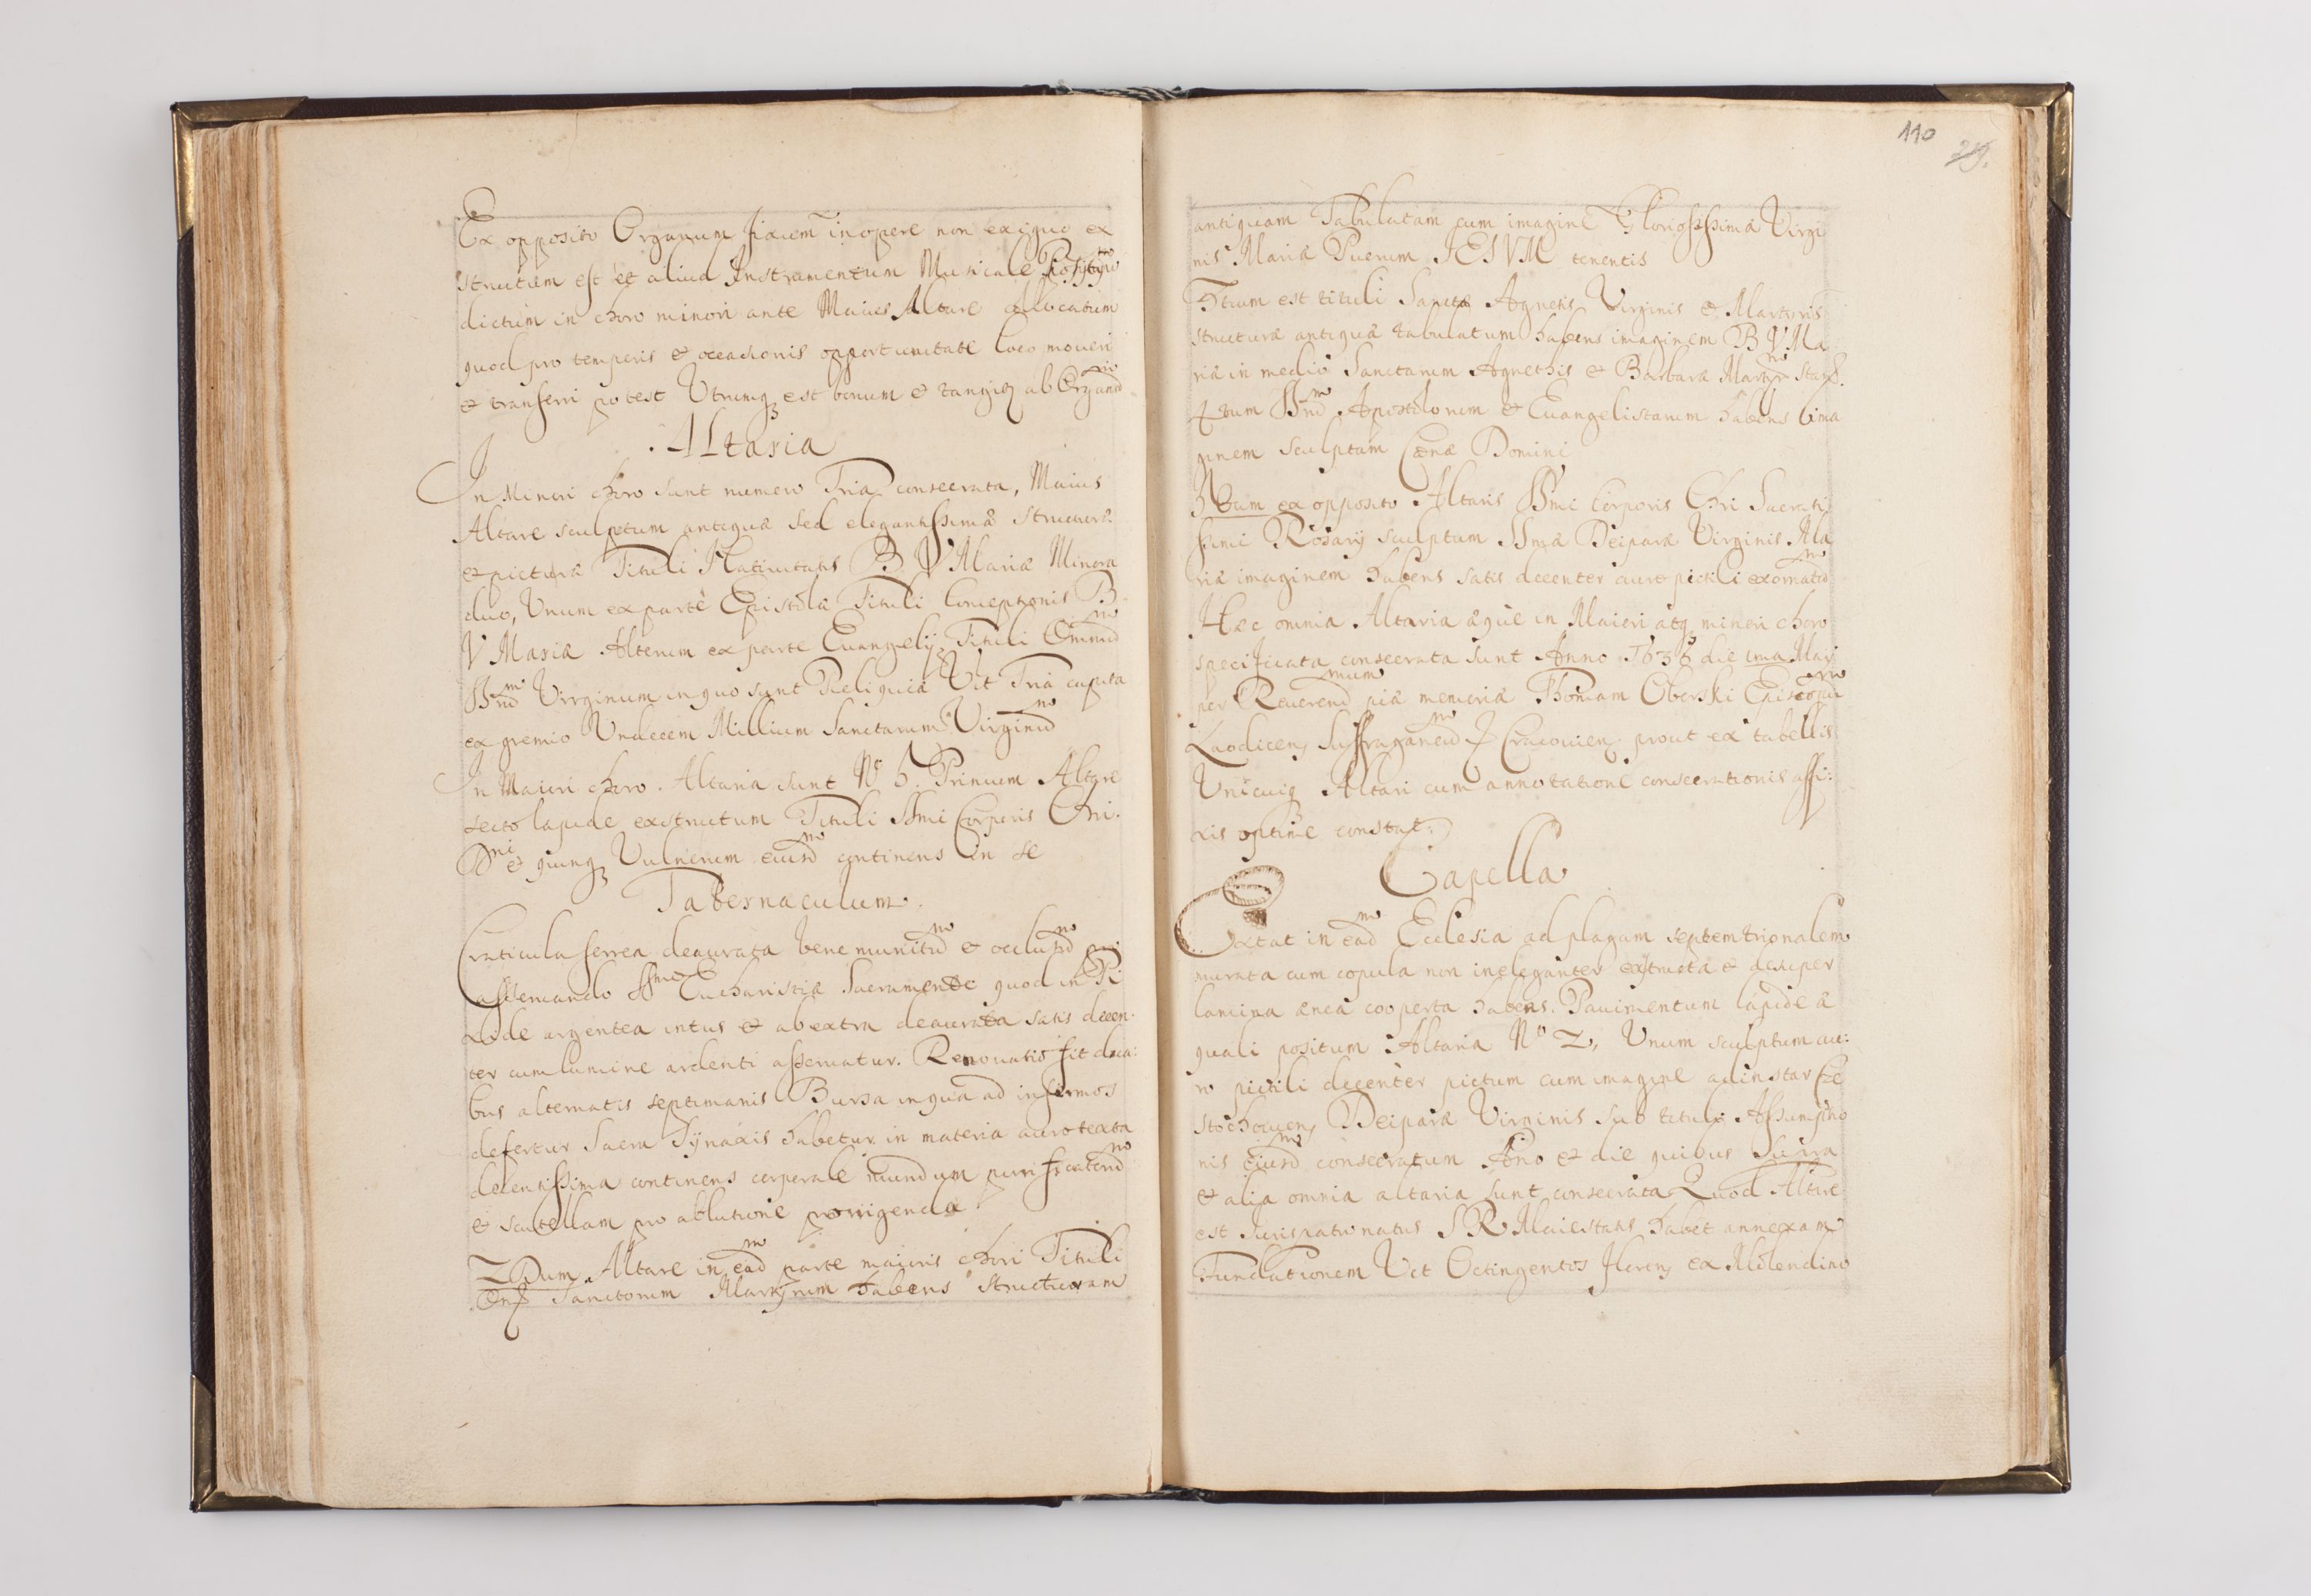 Ex opposito Organum fixum in opere non exiguo ex
structum est et aliud Instrumentum Musicale Positivum
dictum in choro minori ante Maius Altare collocatum
quod pro temporis et occasionis opportunitate loco moveri
et transferri potest Utrumq est bonum et tangitur ab Organario
Altaria
In Minori choro sunt numero Tria consecrata, Maius
Altare sculptum antiquæ sed elegantissimæ structuræ
et picturæ Tituli Nativitatis B V Mariæ Minora
duo, Unum ex parte Epistolæ Tituli Conceptionis B
V Mariæ Alterum ex parte Evangelij Tituli Omniu
SSru Virginum in quo sunt Reliquiæ Vt Tria capita
ex gremio Undecem Millium Sanctarum Virginu
In Maiori choro Altaria sunt No 5. Primum Altare
secto lapide exstructum Tituli SSmi Corporis Chri.
Dni et quinq Vulnerum eiusd continens in se
Tabernaculum.
Craticula ferrea deaurata bene munitu et occlusu pro
asservando SSmo Eucharistiæ Sacramento quod in Pi
xide argentea intus et ab extra deaurata satis decen
ter cum lumine ardenti asservatur. Renovatio fit dua:
bus alternatis septimanis Bursa in qua ad infirmos
defertur Sacra Synaxis habetur in materia auro texta
decentissima continens corporale mundum purificatoriu
et scutellam pro ablutione porrigenda
2Dum Altare in ead parte maioris chori Tituli
Sanctorum Martyrum habens structuram
110
219.
antiquam Tabulatam cum imagine Gloriosissimæ Virgi
nis Mariæ Puerum IESVM tenentis
3tium est tituli Sanctæ Agnetis Virginis et Martyris
structuræ antiquæ tabulatum habens imaginem B V Ma
riæ in medio Sanctarum Agnethis et Barbaræ Martyr
4tum SSru Apostolorum et Evangelistarum habens ima
ginem sculptam Cœnæ Domini
5tum ex opposito Altaris SSmi Corporis Chri Sacrati
ssimi Rosarij sculptum SSmæ Deiparæ Virginis Ma
riæ imaginem habens satis decenter auro pictili exornatu
Hæc omnia Altaria æque in Maiori atq minori choro
specificata consecrata sunt Anno 1636 die 1ma Maij
per Reverendmum piæ memoriæ Thomam Oberski Episcopu
Laodicen, Suffraganeu Cracovien, prout ex tabellis
Unicuiq Altari cum annotatione consecrationis affi:
xis optime constat.
Capella
Extat in ead Ecclesia ad plagam septemtrionalem
murata cum copula non ineleganter exstructa et desuper
lamina ænea cooperta habens. Pavimentum lapide æ
quali positum Altaria No 2, Unum sculptum au:
ro pictili decenter pictum cum imagine ad instar Cze
stochovien, Deiparæ Virginis sub titulo Assumptio
nis eiusd consecratum Ano et die quibus Supra
et alia omnia altaria sunt consecrata Quod Altare
est Iurispatronatus S R Maiestatis habet annexam
Fundationem Vt Octingentos floren, ex Molendino